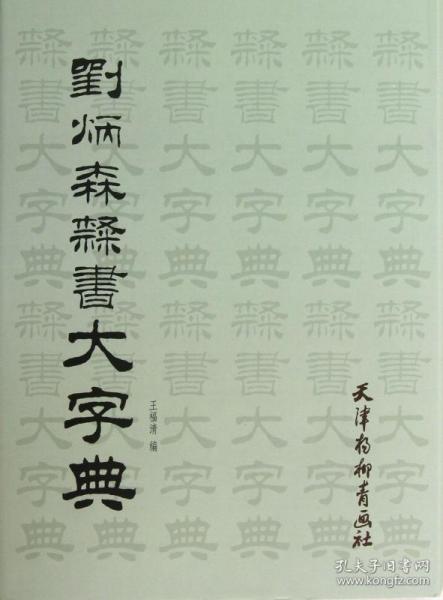 劉炳森隸書大字典
王福清 编
天津杨柳青画社
隸書大字典隸書
隸書大字典隸書大字典
隸書大字典隸書大字典
隸書大字典隸書大字典
隸書大字典隸書大字典
隸書大字典隸書大字典
孔夫子旧书网
www.kongfz.com